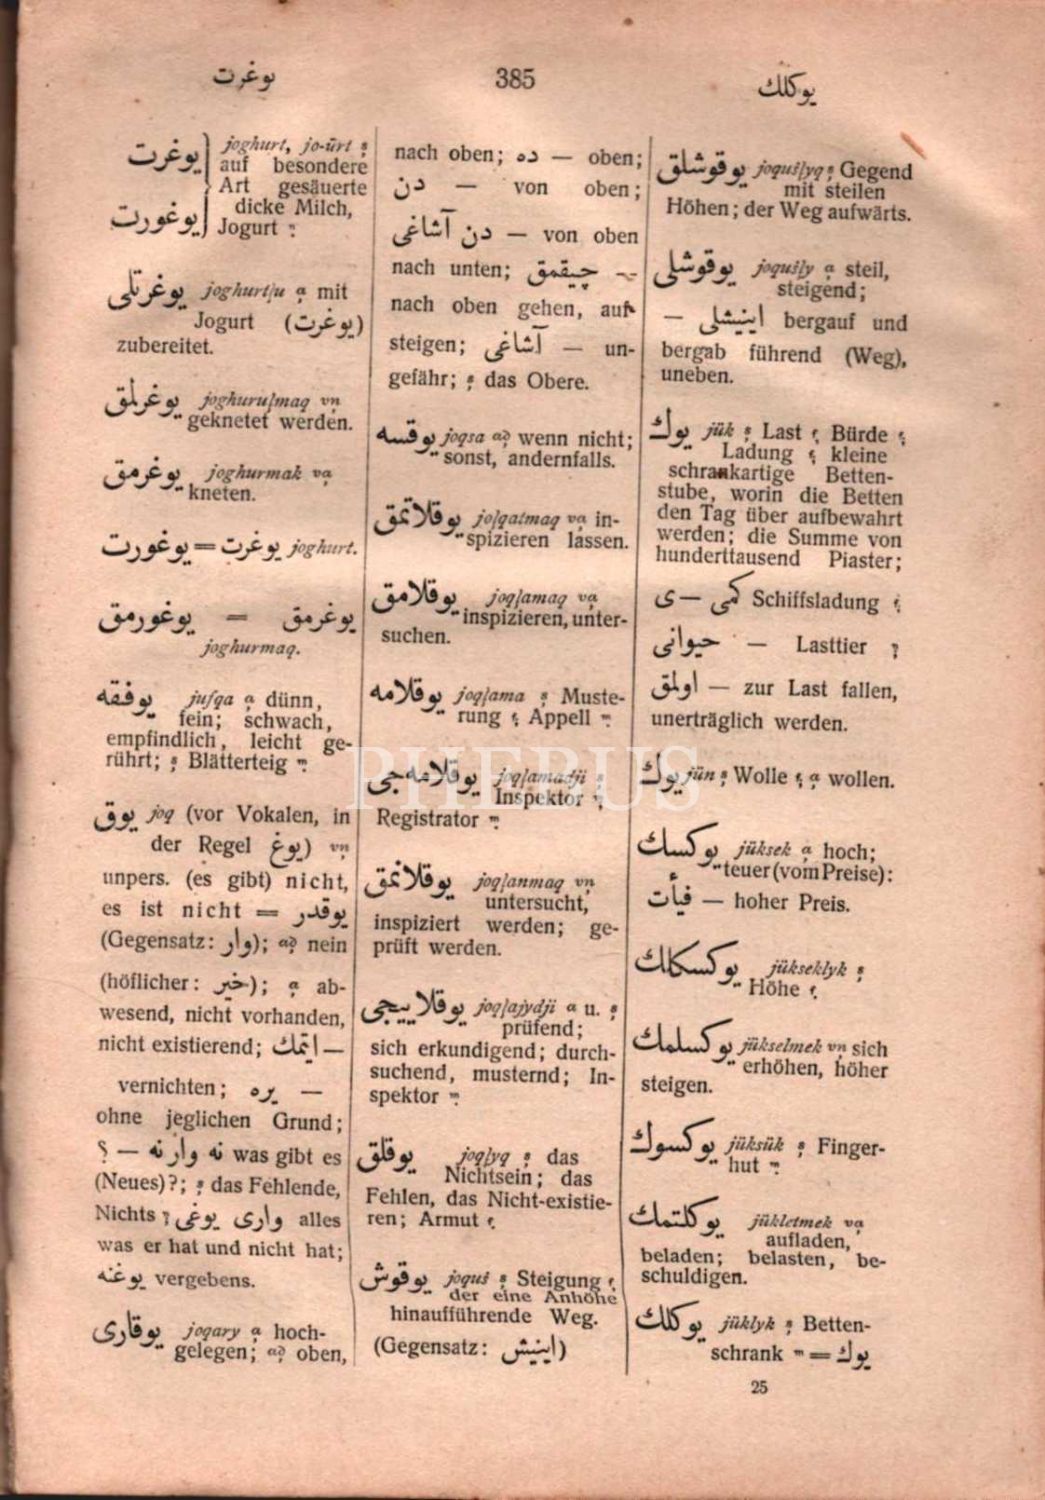 يوغرت
385
يوكلك
يوغرت joghurt, jo-ūrt
auf besondere
Art gesäuerte
dicke Milch,
يوغورت Jogurt
يوغرتلى joghurtļu mit
Jogurt (يوغرت)
zubereitet.
يوغرلمق joghuruļmaq
geknetet werden.
يوغرمق joghurmak
kneten.
يوغورت = يوغرت joghurt.
يوغورمق = يوغرمق
joghurmaq.
يوفقه jufqa dünn,
fein; schwach,
empfindlich, leicht ge-
rührt; Blätterteig
يوق joq (vor Vokalen, in
der Regel يوغ)
unpers. (es gibt) nicht,
es ist nicht = يوقدر
(Gegensatz: وار); nein
(höflicher: خير); ab-
wesend, nicht vorhanden,
nicht existierend; ايتمك —
vernichten; يره —
ohne jeglichen Grund;
؟ — نه وار نه was gibt es
(Neues)?; das Fehlende,
Nichts وارى يوغى alles
was er hat und nicht hat;
يوغنه vergebens.
يوقارى joqary hoch-
gelegen; oben,
nach oben; ده — oben;
دن — von oben;
دن آشاغى — von oben
nach unten; چيقمق —
nach oben gehen, auf-
steigen; آشاغى — un-
gefähr; das Obere.
يوقسه joqsa wenn nicht;
sonst, andernfalls.
يوقلاتمق joļqatmaq in-
spizieren lassen.
يوقلامق joqļamaq
inspizieren, unter-
suchen.
يوقلامه joqļama Muste-
rung Appell
يوقلامه‌جى joqļamadji
Inspektor
Registrator
يوقلانمق joqļanmaq
untersucht,
inspiziert werden; ge-
prüft werden.
يوقلاييجى joqļajydji a u.
prüfend;
sich erkundigend; durch-
suchend, musternd; In-
spektor
يوقلق joqļyq das
Nichtsein; das
Fehlen, das Nicht-existie-
ren; Armut
يوقوش joquš Steigung
der eine Anhöhe
hinaufführende Weg.
(Gegensatz: اينيش)
يوقوشلق joqušļyq Gegend
mit steilen
Höhen; der Weg aufwärts.
يوقوشلى joqušļy steil,
steigend;
اينيشلى — bergauf und
bergab führend (Weg),
uneben.
يوك jük Last Bürde
Ladung kleine
schrankartige Betten-
stube, worin die Betten
den Tag über aufbewahrt
werden; die Summe von
hunderttausend Piaster;
كمى —ى Schiffsladung
حيوانى — Lasttier
اولمق — zur Last fallen,
unerträglich werden.
يوك jün Wolle wollen.
يوكسك jüksek hoch;
teuer (vom Preise):
فيأت — hoher Preis.
يوكسكلك jükseklyk
Höhe
يوكسلمك jükselmek sich
erhöhen, höher
steigen.
يوكسوك jüksük Finger-
hut
يوكلتمك jükletmek
aufladen,
beladen; belasten, be-
schuldigen.
يوكلك jüklyk Betten-
schrank = يوك
25
PHEBUS